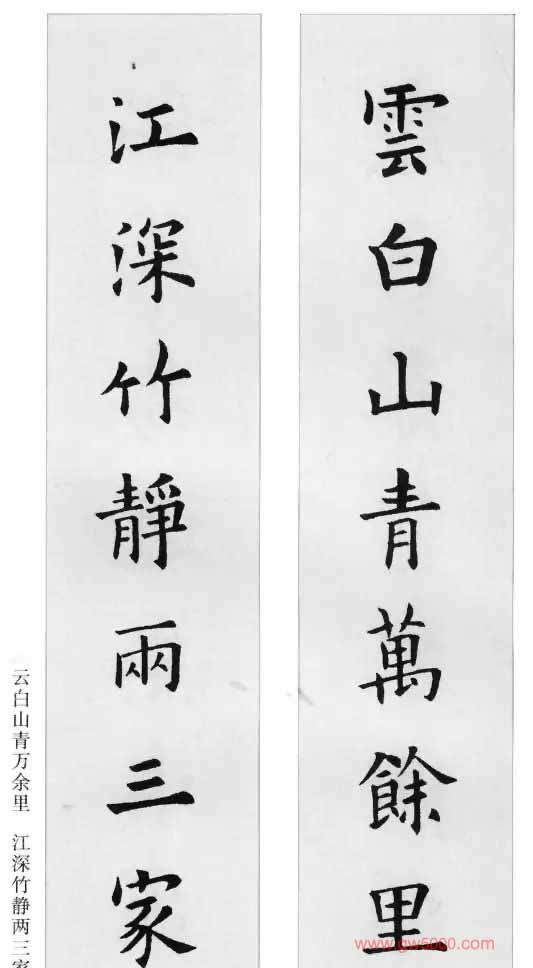 雲白山青萬餘里
江深竹靜兩三家
云白山青万余里 江深竹静两三家
www.gw5000.com